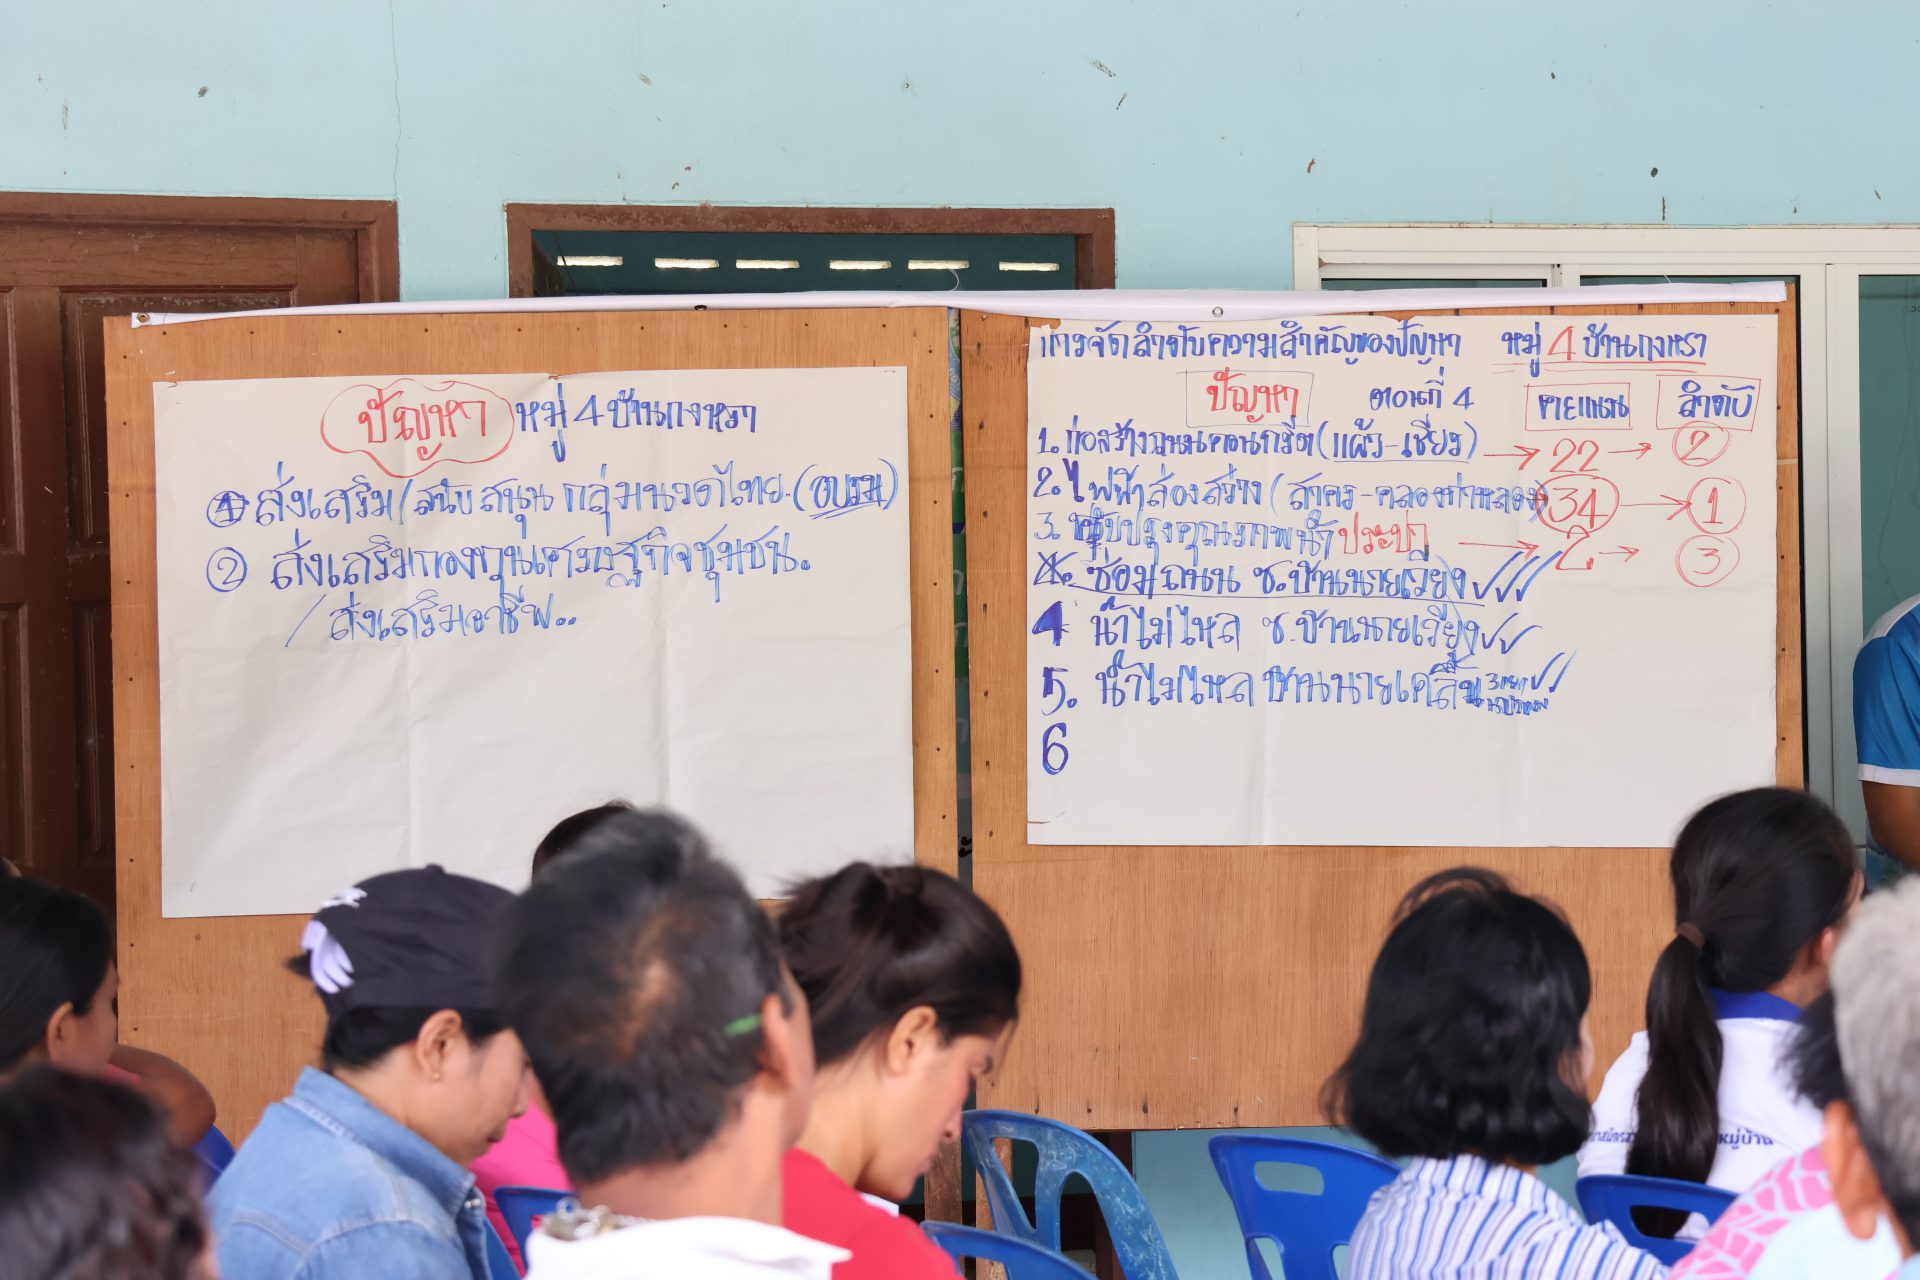 ปัญหา หมู่ 4 บ้านกงหรา
① ส่งเสริม/สนับสนุน กลุ่มนวดไทย.(อบรม)
② ส่งเสริมกองทุนเศรษฐกิจชุมชน.
/ ส่งเสริมอาชีพ..
การจัดลำดับความสำคัญของปัญหา หมู่ 4 บ้านกงหรา
ปัญหา ตอนที่ 4 คะแนน ลำดับ
1. ก่อสร้างถนนคอนกรีต (แผ้ว-เชียร) → 22 → 2
2. ไฟฟ้าส่องสว่าง (สาคร-คลองท่าหลวง) 34 → 1
3. ปรับปรุงคุณภาพน้ำประปา → 2 → 3
ซ่อมถนน ซ.บ้านนายเวียง ✓✓✓
4 น้ำไม่ไหล ซ.บ้านนายเวียง ✓✓
5. น้ำไม่ไหล บ้านนายเคลื่อน ✓✓
6
หมู่บ้าน